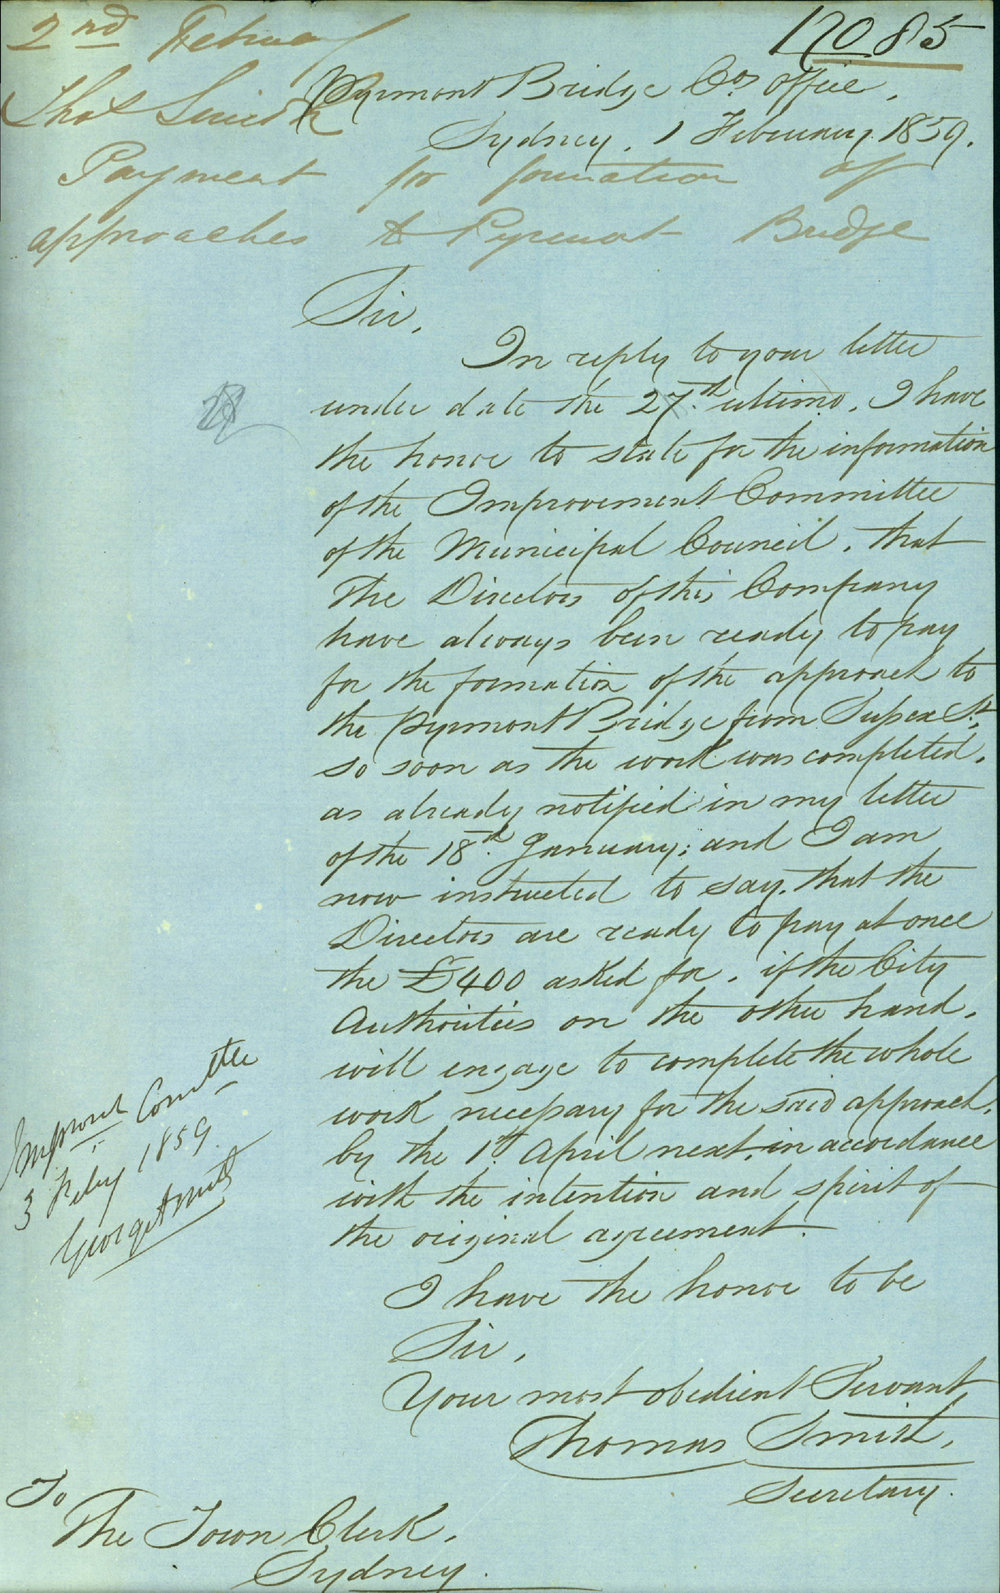 2nd February
17085
Thos Smith
Pyrmont Bridge Cos. office,
Sydney, 1 February 1859.
Payment for formation of
approaches to Pyrmont Bridge
Sir,
In reply to your letter
under date the 27th ultimo, I have
the honor to state for the information
of the Improvement Committee
of the Municipal Council, that
the Directors of this Company
have always been ready to pay
for the formation of the approach to
the Pyrmont Bridge from Sussex St.,
so soon as the work was completed,
as already notified in my letter
of the 18th January; and I am
now instructed to say, that the
Directors are ready to pay at once
the £400 asked for, if the City
Authorities on the other hand,
will engage to complete the whole
work necessary for the said approach,
by the 1st April next, in accordance
with the intention and spirit of
the original agreement.
I have the honor to be
Sir,
Your most obedient Servant
Thomas Smith,
Secretary.
To
The Town Clerk,
Sydney.
Improvt Comttee
3 Feby 1859
George